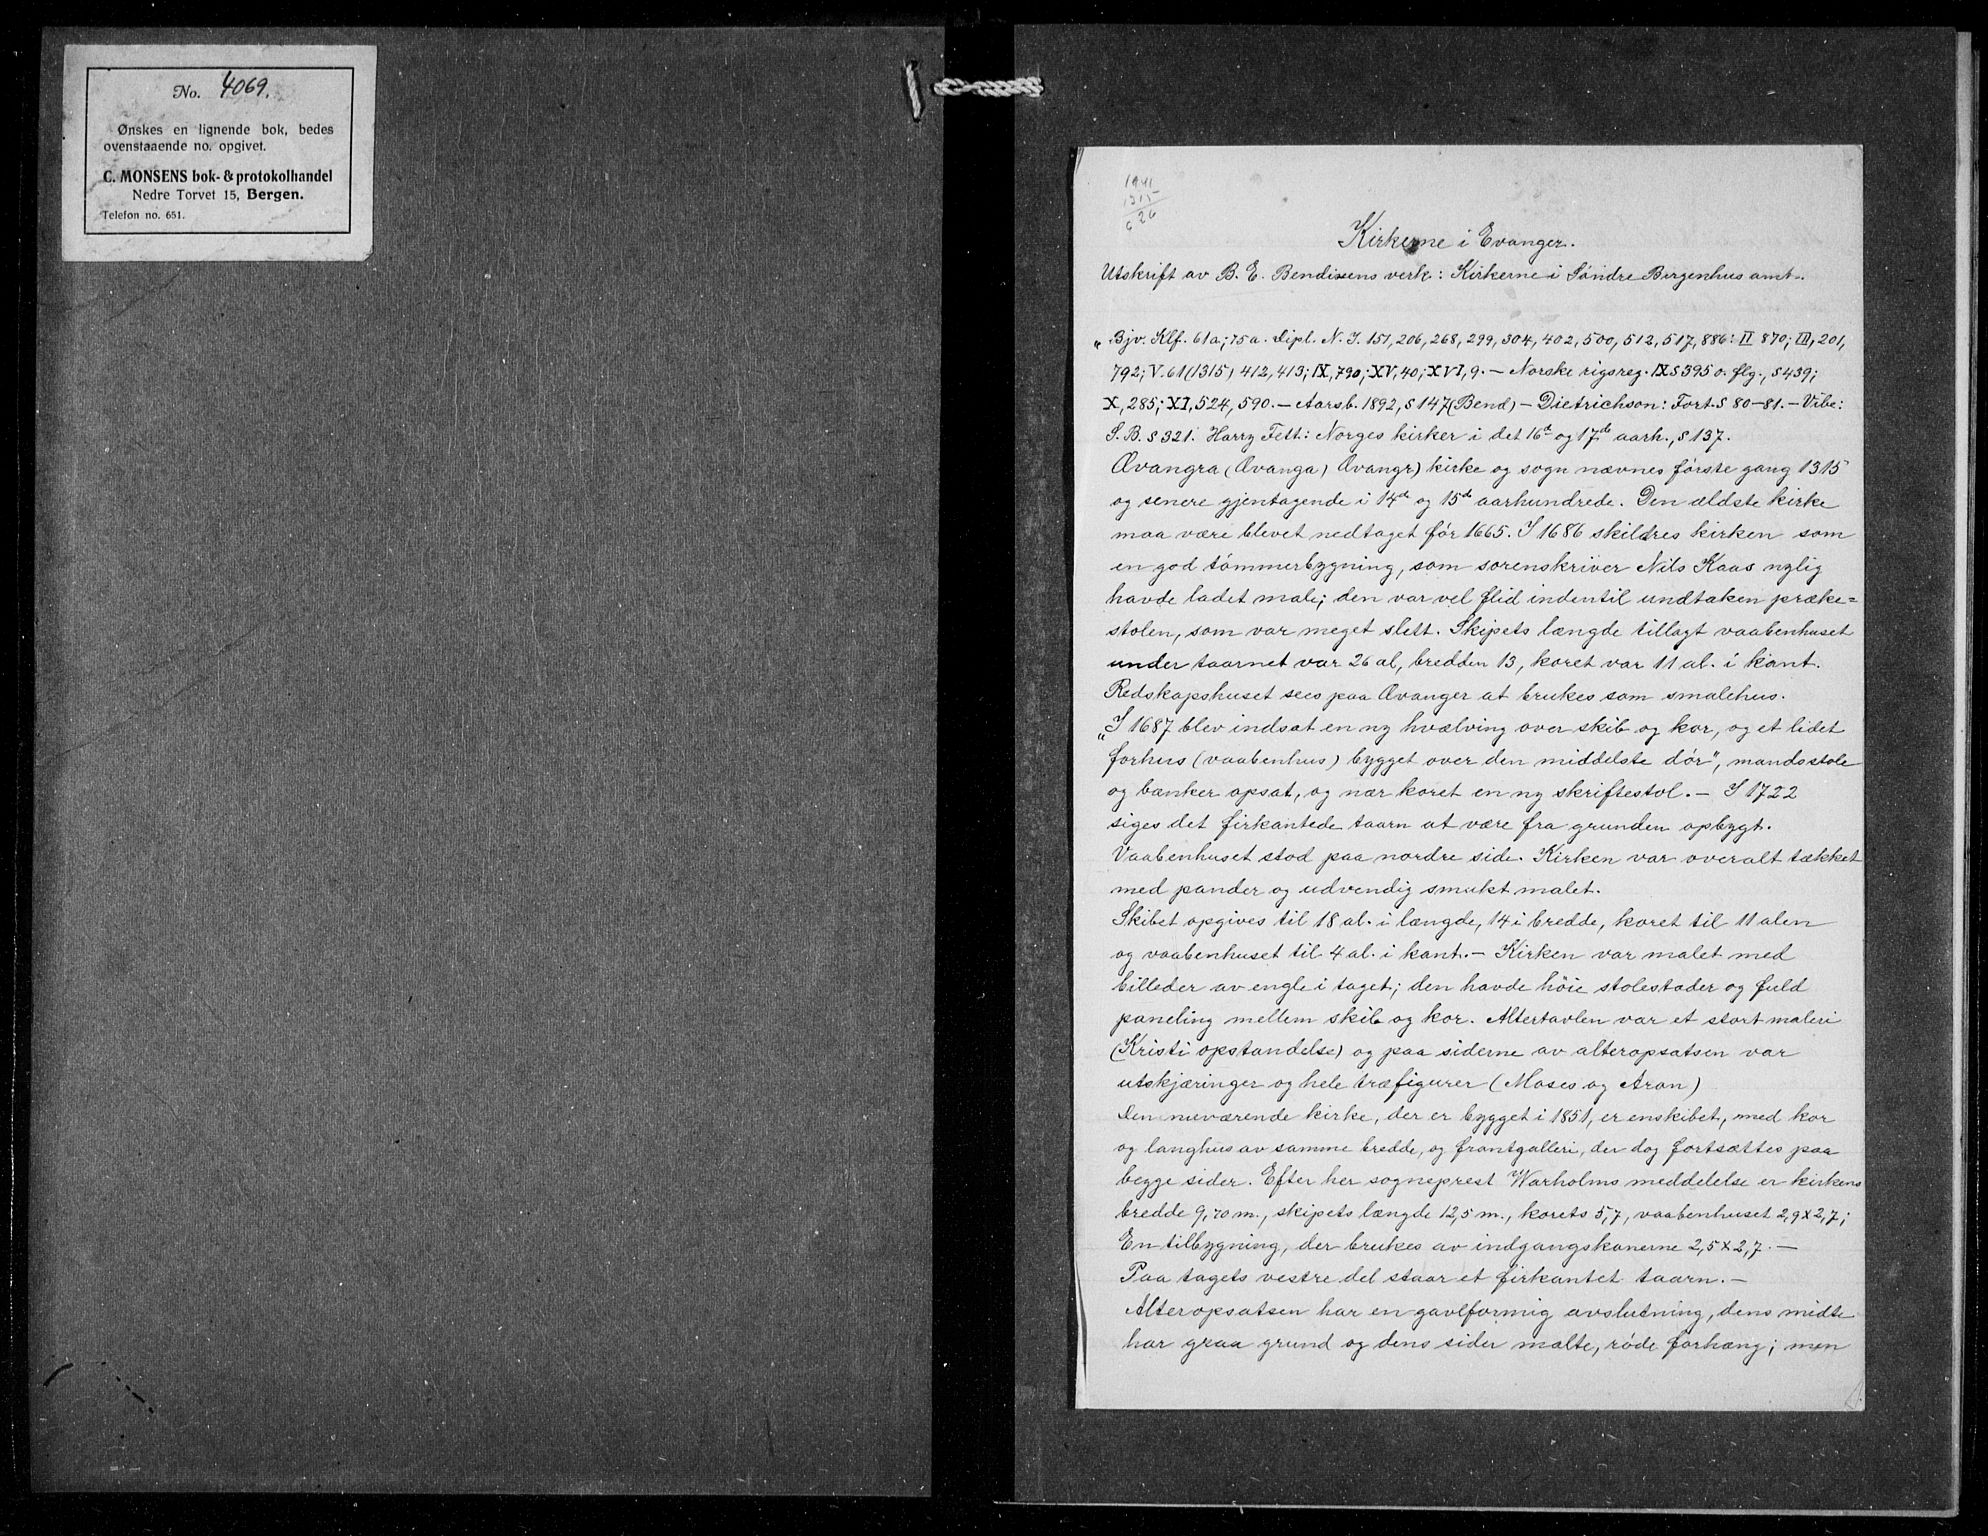 No. 4069.
Ønskes en lignende bok, bedes
ovenstaaende no. opgivet.
C. MONSENS bok- & protokolhandel
Nedre Torvet 15, Bergen.
Telefon no. 651.
1941
1315
626
Kirkerne i Evanger.
Utskrift av B. E. Bendixens verk: Kirkerne i Søndre Bergenhus amt.
"Bjv. Klf. 61a; 75a. Dipl. N. I. 151, 206, 268, 299, 304, 402, 500, 512, 517, 886: II 870; III, 201,
792; V. 61 (1315) 412, 413; IX, 790; XV, 40; XVI, 9. — Norske rigsreg. IX S 395 o. flg., S 439;
X, 285; XI, 524, 590. — Aarsb. 1892, S 147 (Bend) — Dietrichson: Fort. S 80-81. — Vibe:
S. B. S 321. Harry Fett: Norges kirker i det 16d og 17de aarh., S 137.
Ævangra (Ævanga) Ævangr) kirke og sogn nævnes første gang 1315
og senere gjentagende i 14de og 15de aarhundrede. Den ældste kirke
maa være blevet nedtaget før 1665. I 1686 skildres kirken som
en god tømmerbygning, som sorenskriver Nils Kaas nylig
havde ladet male; den var vel flid indentil undtaken præke=
stolen, som var meget slett. Skipets længde tillagt vaabenhuset
under taarnet var 26 al, bredden 13, koret var 11 al. i kant.
Redskapshuset sees paa Ævanger at brukes som smalehus.
"I 1687 blev indsat en ny hvælving over skib og kor, og et lidet
forhus (vaabenhus) bygget over den middelste dør", mandsstole
og bænker opsat, og nær koret en ny skriftestol. — I 1722
siges det firkantede taarn at være fra grunden opbygt.
Vaabenhuset stod paa nordre side. Kirken var overalt tækket
med pander og udvendig smukt malet.
Skibet opgives til 18 al. i længde, 14 i bredde, koret til 11 alen
og vaabenhuset til 4 al. i kant. — Kirken var malet med
billeder av engle i taget; den havde høie stolestader og fuld
paneling mellem skib og kor. Altertavlen var et stort maleri
(Kristi opstandelse) og paa siderne av alteropsatsen var
utskjæringer og hele træfigurer (Moses og Aron)
Den nuværende kirke, der er bygget i 1851, er enskibet, med kor
og langhus av samme bredde, og frontgalleri, der dog fortsættes paa
begge sider. Efter her sogneprest Warholms meddelelse er kirkens
bredde 9,70 m., skipets længde 12,5 m., korets 5,7, vaabenhuset 2,9 x 2,7;
En tilbygning, der brukes av indgangskonerne 2,5 x 2,7. —
Paa tagets vestre del staar et firkantet taarn. —
Alteropsatsen har en gavlformig avslutning, dens midte
har graa grund og dens sider malte, røde forhæng; men